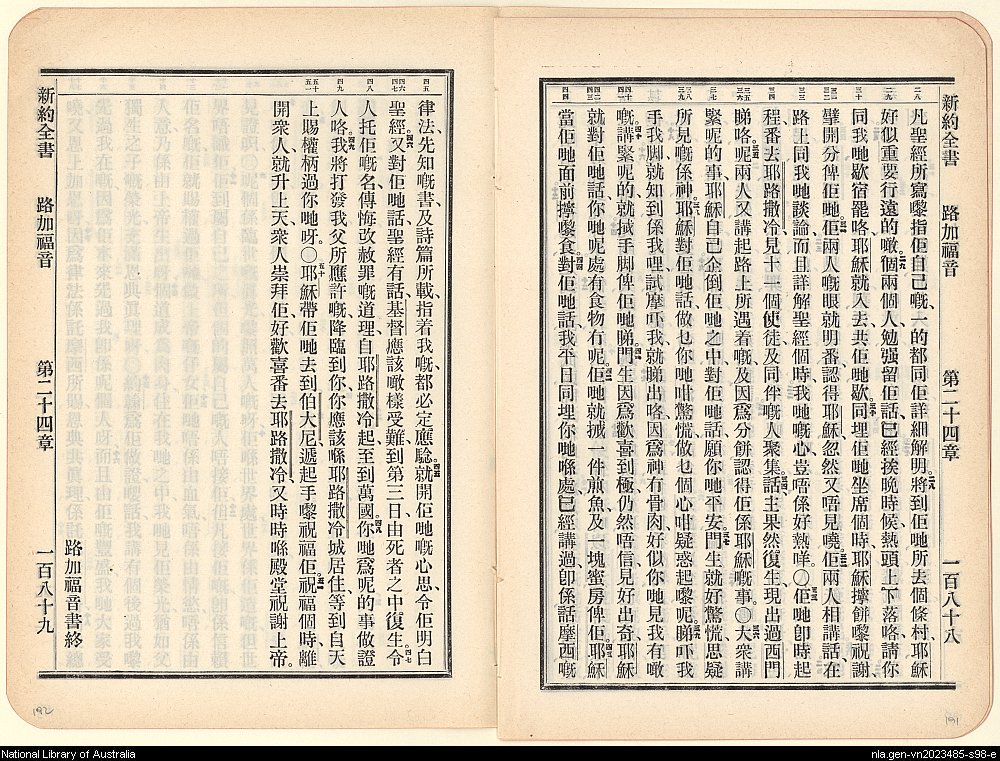 新約全書 路加福音 第二十四章 一百八十八
二八 二九 三十 三一 三二 三三 三四 三五 三六 三七 三八 三九 四十 四一 四二 四三 四四
凡聖經所寫嚟指佢自己嘅、一的都同佢詳細解明。將到佢哋所去個條村、耶穌
好似重要行遠的噉。個兩個人、勉强留佢話、已經挨晚時候、熱頭上下落咯、請你
同我哋歇宿罷咯、耶穌就入去共佢哋歇。同埋佢哋坐席個時、耶穌擰餅嚟祝謝、
擘開分俾佢哋。佢兩人嘅眼就明番、認得耶穌、忽然又唔見嘵。佢兩人相講話、在
路上同我哋談論、而且詳解聖經個時、我哋嘅心、豈唔係好熱咩。〇佢哋卽時起
程、番去耶路撒冷、見十一個使徒、及同伴嘅人聚集。話、主果然復生、現出過西門
睇咯。呢兩人又講起路上所遇着嘅、及因爲分餅認得佢係耶穌嘅事。〇大衆講
緊呢的事、耶穌自己企倒佢哋之中、對佢哋話、願你哋平安。門生就好驚慌、思疑
所見嘅係神。耶穌對佢哋話、做乜你哋咁驚慌、做乜個心咁疑惑起嚟呢。睇吓我
手我脚、就知到係我哩、試摩吓我就睇出咯、因爲神有骨肉、好似你哋見我有噉
嘅。講緊呢的、就搣手脚俾佢哋睇。門生因爲歡喜到極、仍然唔信、見好出奇、耶穌
就對佢哋話、你哋呢處有食物有呢。佢哋就搣一件煎魚、及一塊蜜房俾佢。耶穌
當佢哋面前擰嚟食。對佢哋話、我平日同埋你哋喺處、已經講過、卽係話、摩西嘅
新約全書 路加福音 第二十四章 一百八十九
四五 四六 四七 四八 四九 五十 五一
律法、先知嘅書、及詩篇所載指着我嘅、都必定應騐。就開佢哋嘅心思、令佢明白
聖經。又對佢哋話、聖經有話、基督應該噉樣受難、到第三日由死者之中復生。令
人托佢嘅名、傳悔改赦罪嘅道理、自耶路撒冷起、至到萬國。你哋爲呢的事做證
人咯。我將打發我父所應許嘅降臨到你、你應該喺耶路撒冷城居住、等到自天
上賜權柄過你哋呀。〇耶穌帶佢哋去到伯大尼、遞起手嚟祝福佢。祝福個時、離
開衆人、就升上天。衆人崇拜佢、好歡喜番去耶路撒冷。又時時喺殿堂祝謝上帝。
路加福音書終
192
191
National Library of Australia
nla.gen-vn2023485-s98-e